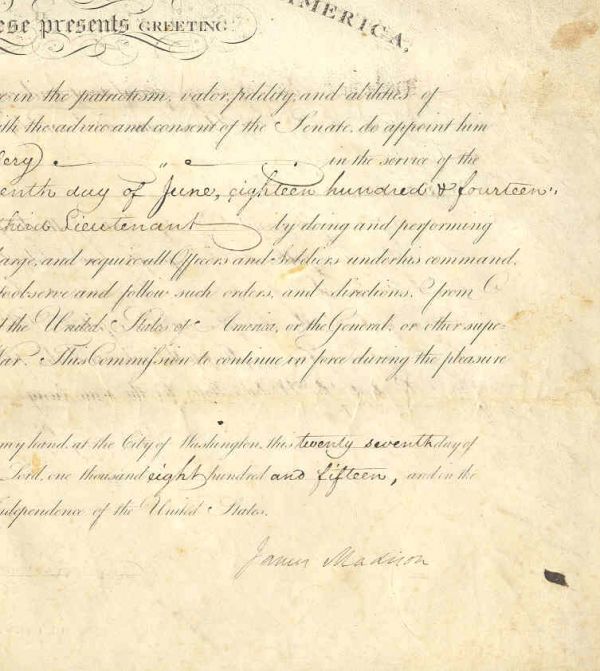 AMERICA,
ese presents GREETING
e in the patriotism, valor, fidelity, and abilities of
ith the advice and consent of the Senate, do appoint him
lery) " in the service of the
enth day of June, eighteen hundred & fourteen.
third Lieutenant by doing and performing
and require all Officers and Soldiers under his command,
observe and follow such orders, and directions, from
t the United States of America, or the General, or other supe-
War. This Commission to continue in force during the pleasure
my hand, at the City of Washington, this twenty seventh day of
Lord, one thousand eight hundred and fifteen, and in the
Independence of the United States.
James Madison